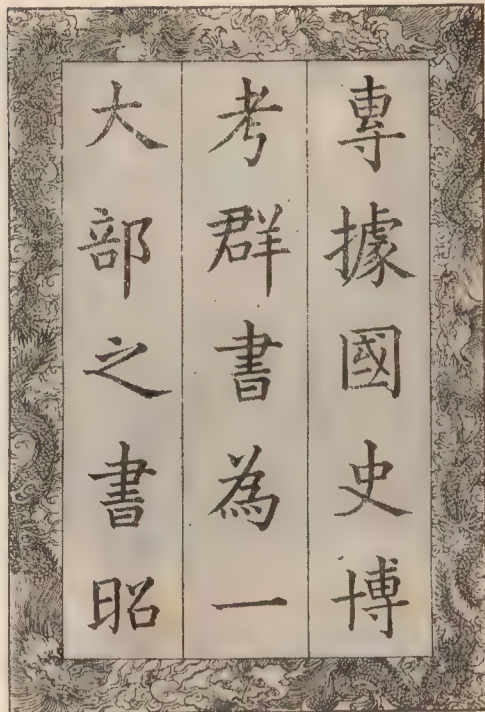 專據國史博
考群書為一
大部之書昭